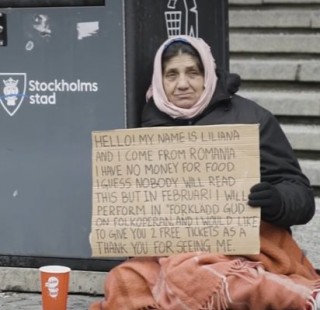 Stockholms
stad
HELLO! MY NAME IS LILIANA
AND I COME FROM ROMANIA
I HAVE NO MONEY FOR FOOD
I GUESS NOBODY WILL READ
THIS BUT IN FEBRUARI I WILL
PERFORM IN "FÖRKLÄDD GUD"
ON FOLKOPERAN AND I WOULD LIKE
TO GIVE YOU 2 FREE TICKETS AS A
THANK YOU FOR SEEING ME.